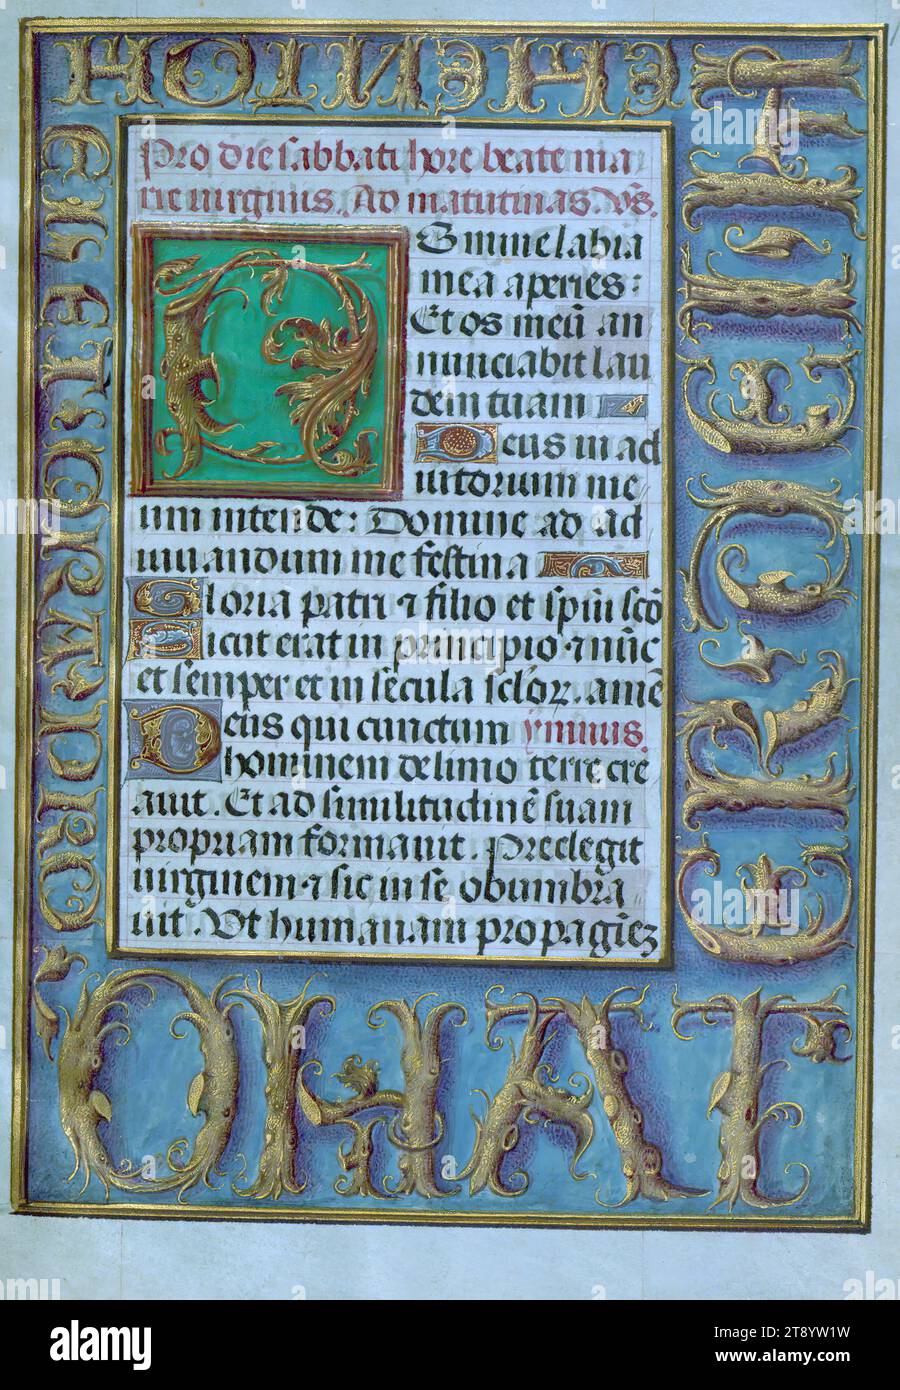 Pro die sabbati hore beate ma
rie virginis. Ad matutinas. v̄s.
Domine labia
mea aperies:
Et os meū an
nunciabit lau
dem tuam
Deus in ad
iutorium me
um intende: Domine ad ad
iuvandum me festina
Gloria patri ⁊ filio et spiū scō
Sicut erat in principio ⁊ nūc
et semper et in secula sclorꝝ. amē
Deus qui cunctum ymnus.
hominem de limo terre cre
avit. Et ad similitudinē suam
propriam formavit. Preelegit
virginem ⁊ sic in se obumbra
vit. Ut humanam propagiēz
OHAT
alamy
Image ID: 2T8YW1W
www.alamy.com